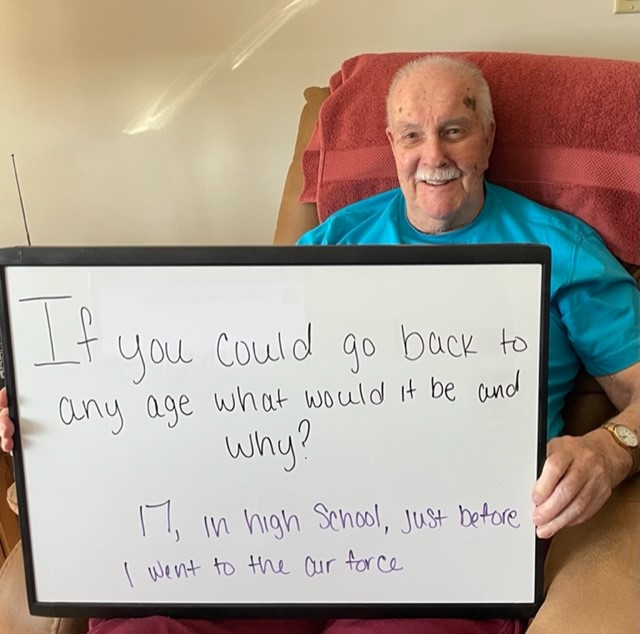 If you could go back to
any age what would it be and
why?
17, in high School, just before
I went to the air force